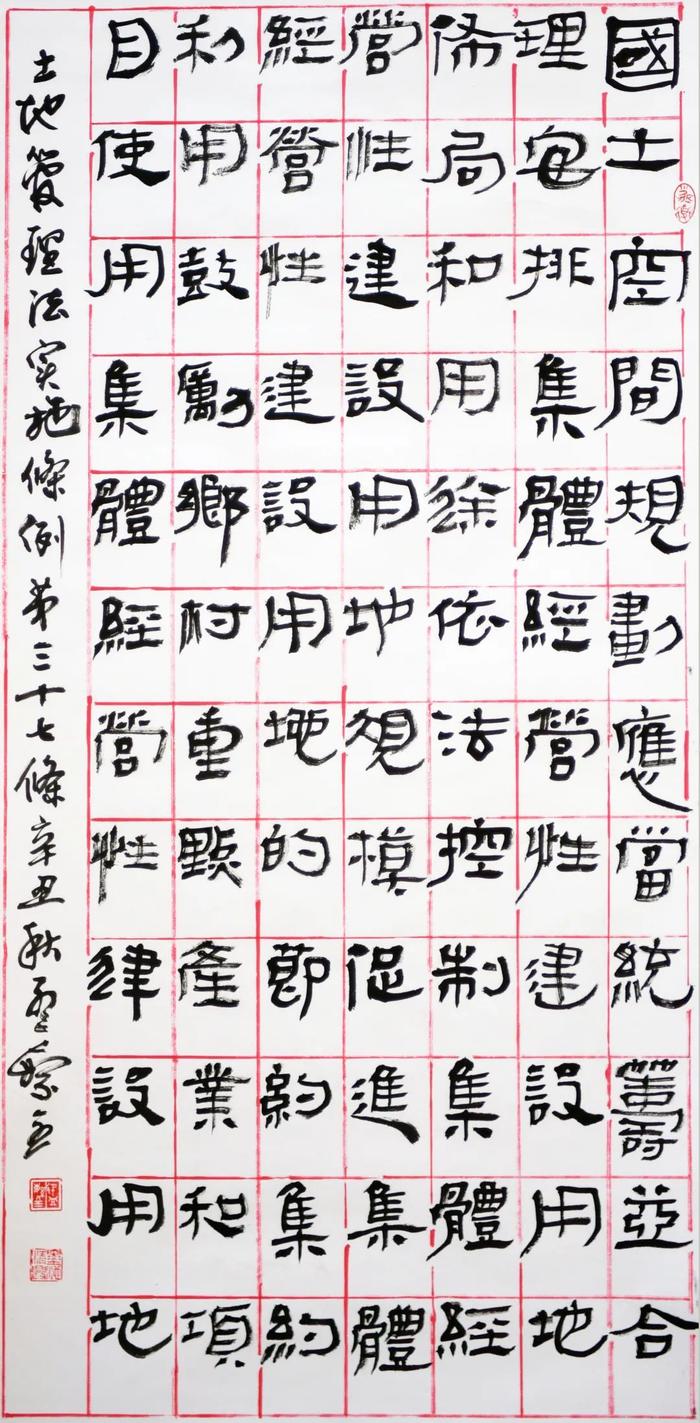 國土空間規劃應當統籌並合
理安排集體經營性建設用地
佈局和用途依法控制集體經
營性建設用地規模促進集體
經營性建設用地的節約集約
利用鼓勵鄉村重點產業和項
目使用集體經營性建設用地
土地管理法实施條例第三十七條辛丑秋